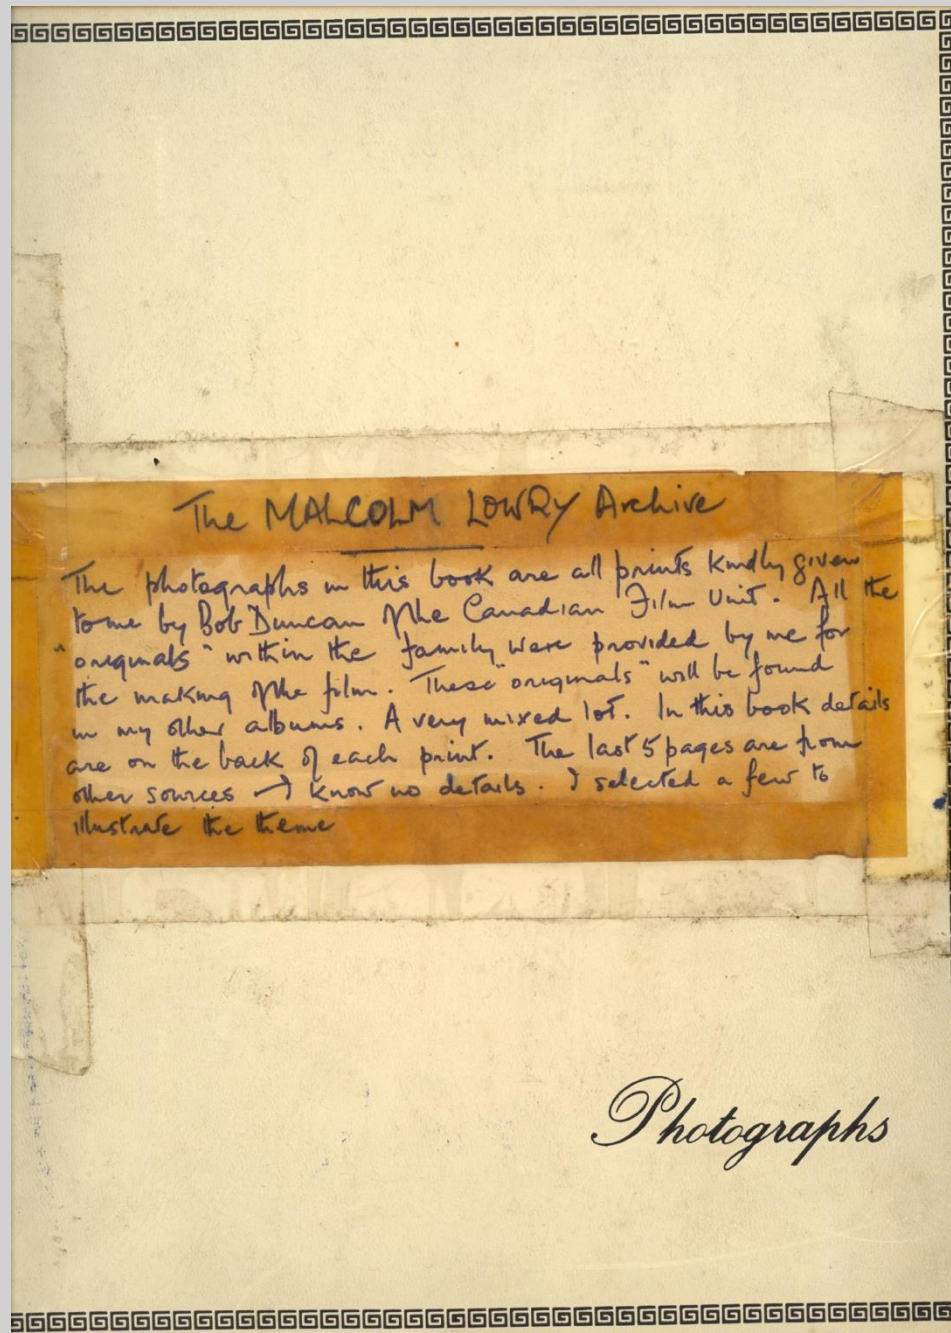 The MALCOLM LOWRY Archive
The photographs in this book are all prints kindly given
to me by Bob Duncan of the Canadian Film Unit. All the
"originals" within the family were provided by me for
the making of the film. These "originals" will be found
in my other albums. A very mixed lot. In this book details
are on the back of each print. The last 5 pages are from
other sources – I know no details. I selected a few to
illustrate the theme
Photographs